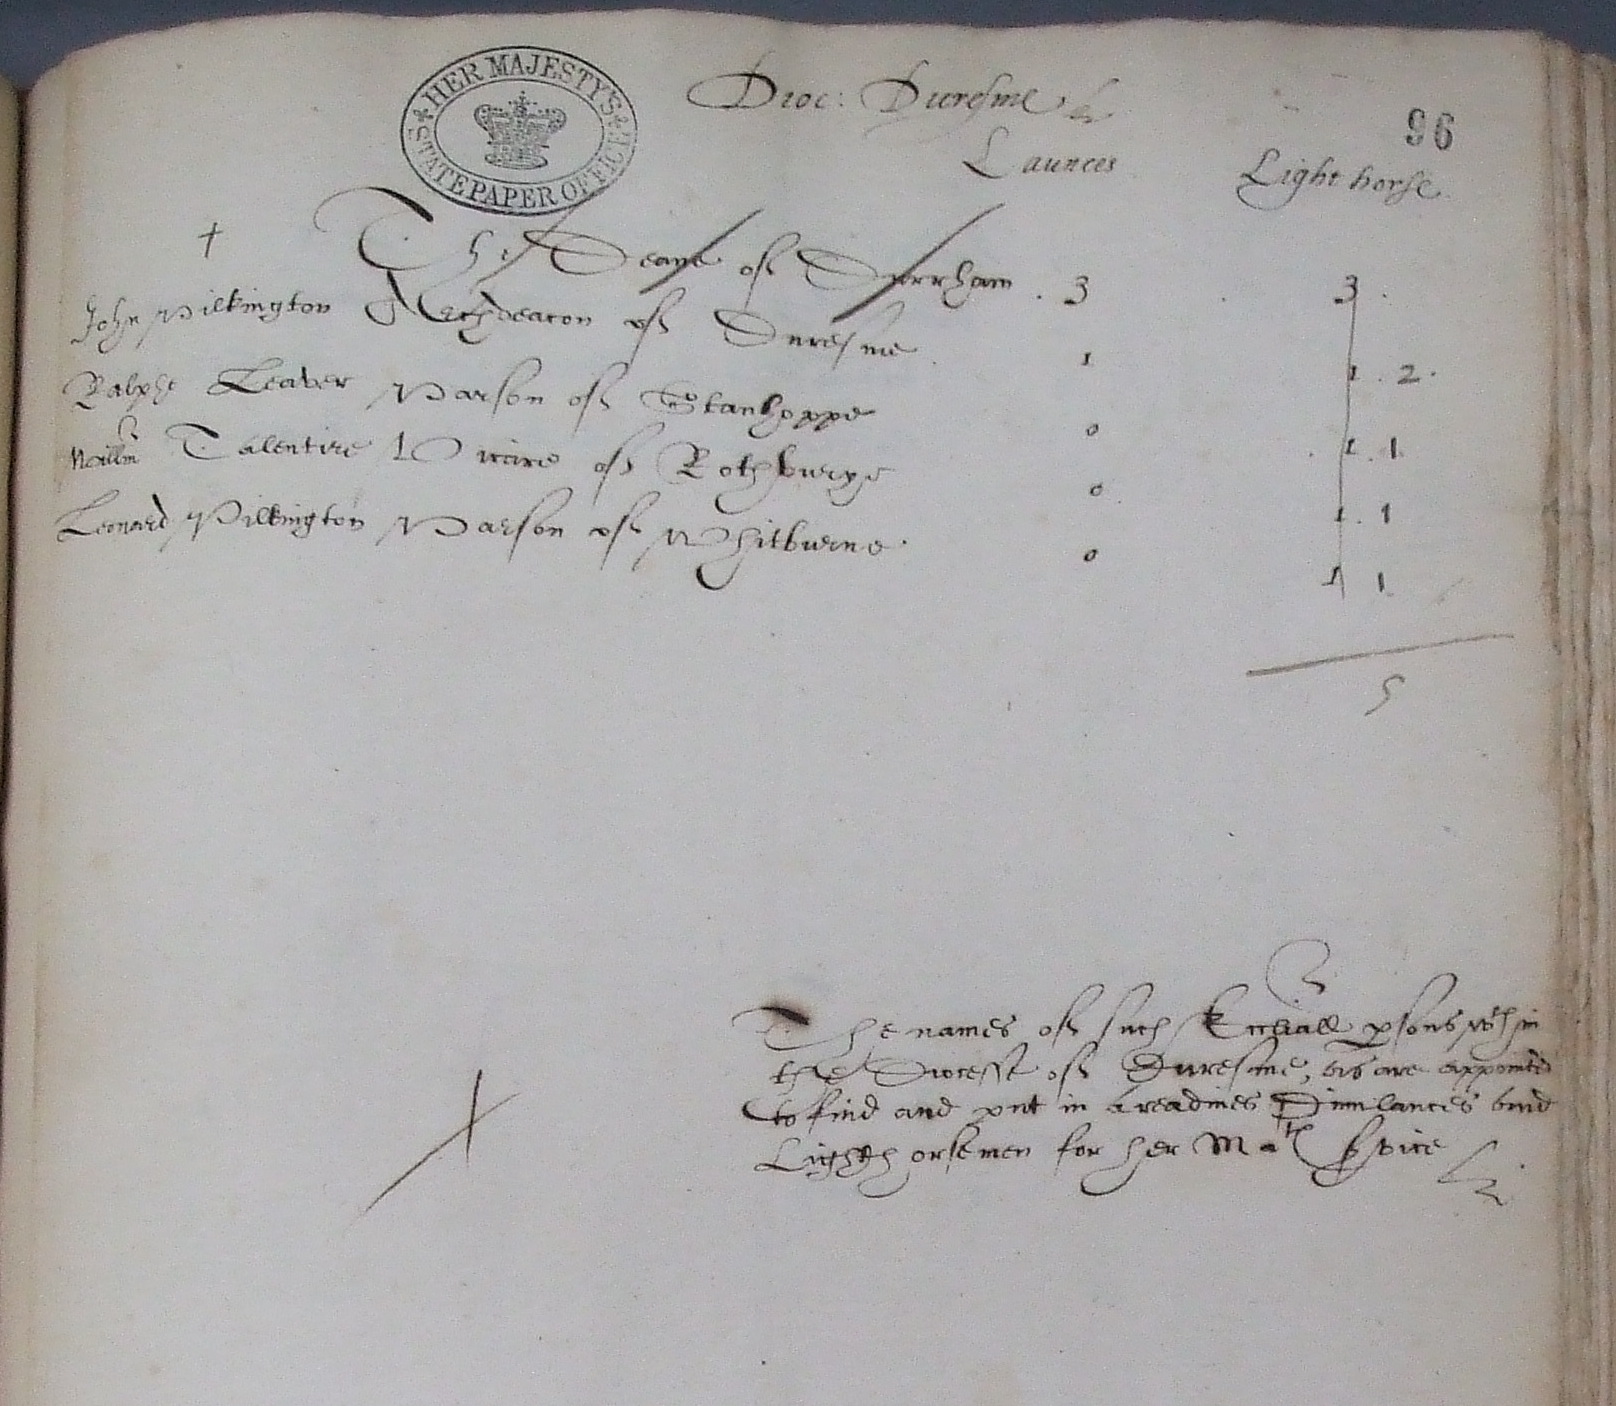 HER MAJESTY'S STATE PAPER OFFICE
Dioc: Duresme
96
Launces Light horse
The Deane of Durrham . 3 . 3 .
John Pilkington Archdeacon of Duresme . 1 1 . 2 .
Ralphe Leaver Parson of Stanhoppe 0 . 1 . 1
Willm Talentire Vicare of Rothburye 0 . 1 . 1
Leonard Pilkington Parson of Whitburne . 0 1 1
5
The names of such Eccliall psons wthin
the Diocesse of Duresme, as are appointed
to find and put in areadines Dimilances and
Light horsemen for her Matie Service